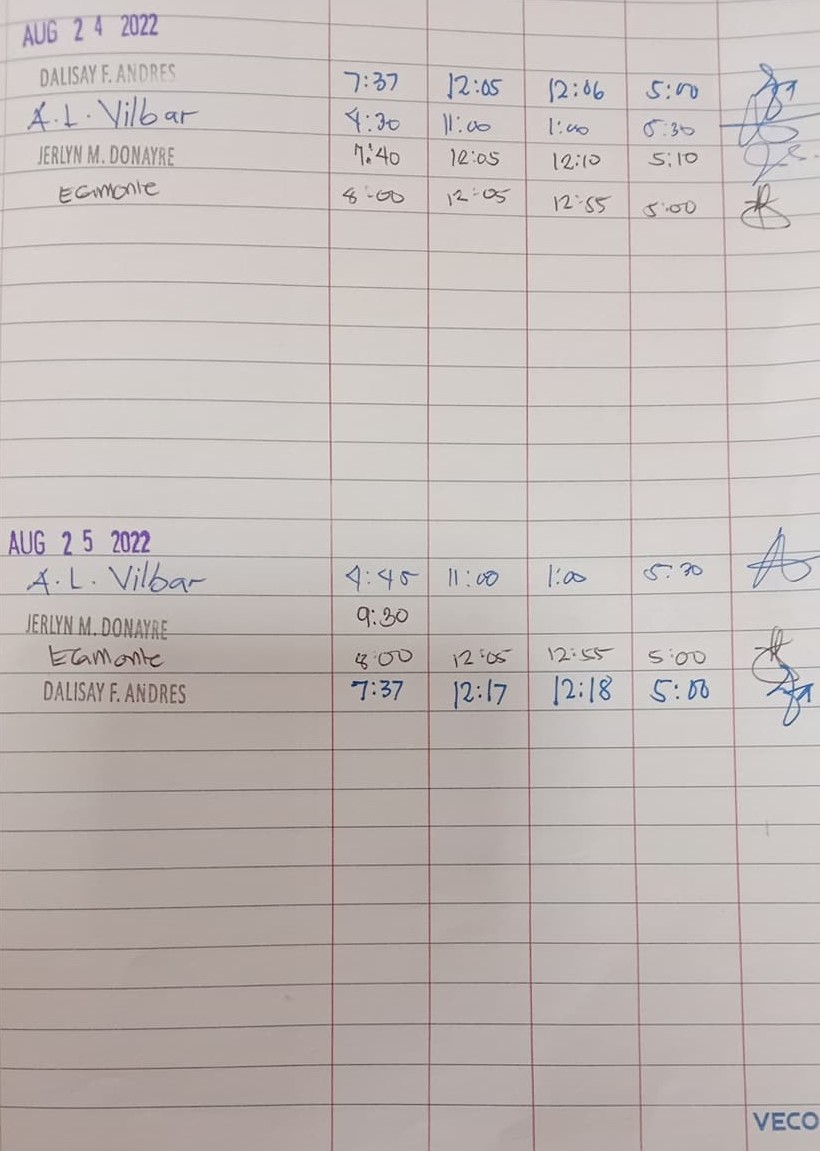 AUG 24 2022
DALISAY F. ANDRES 7:37 12:05 12:06 5:00
A. L. Vilbar 4:30 11:00 1:00 5:30
JERLYN M. DONAYRE 7:40 12:05 12:10 5:10
8:00 12:05 12:55 5:00
AUG 25 2022
A. L. Vilbar 4:45 11:00 1:00 5:30
JERLYN M. DONAYRE 9:30
8:00 12:05 12:55 5:00
DALISAY F. ANDRES 7:37 12:17 12:18 5:00
VECO